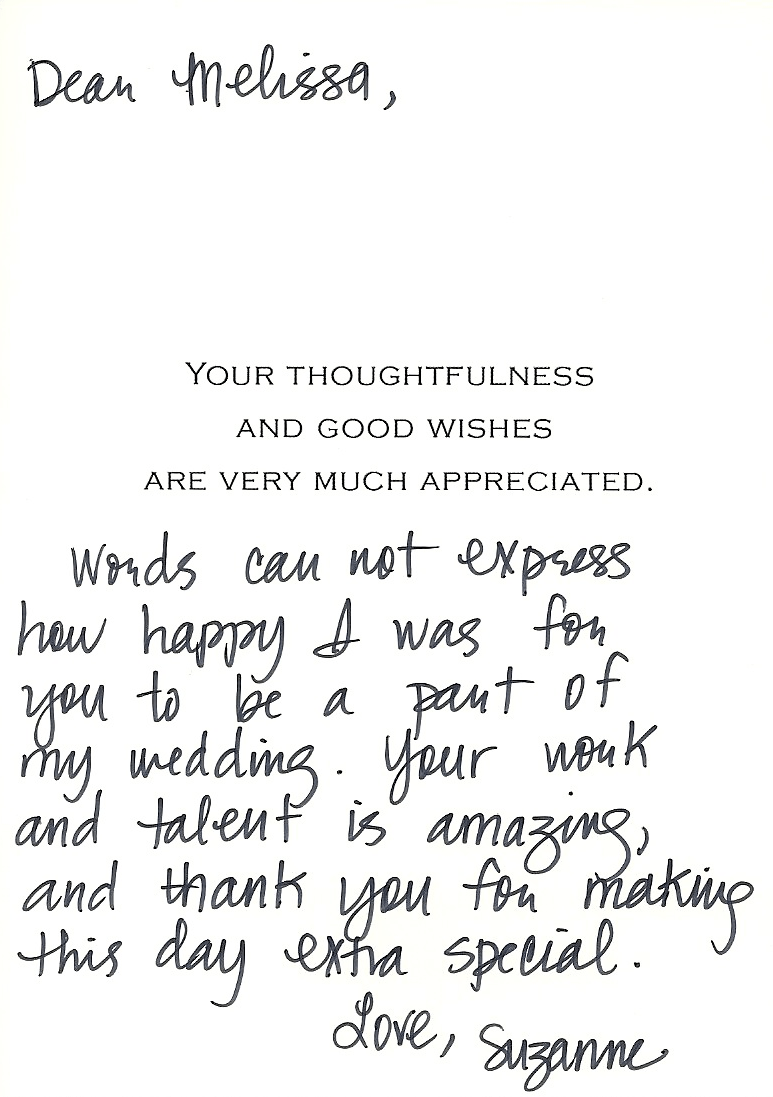 Dear Melissa,
YOUR THOUGHTFULNESS
AND GOOD WISHES
ARE VERY MUCH APPRECIATED.
Words can not express
how happy I was for
you to be a part of
my wedding. Your work
and talent is amazing,
and thank you for making
this day extra special.
Love, Suzanne